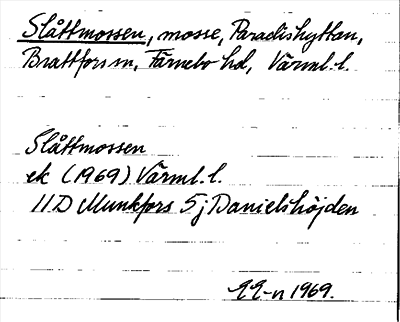 Slåttmossen, mosse, Paradishyttan,
Brattfors sn, Färnebo hd, Värml. l.
Slåttmossen
ek (1969) Värml. l.
11D Munkfors 5j Danielshöjden
1969.